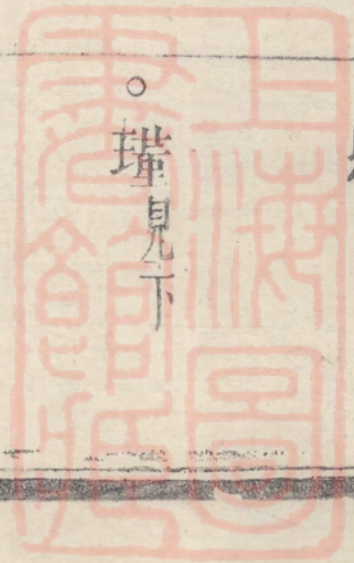 ○瑾見下
上海圖
書館藏